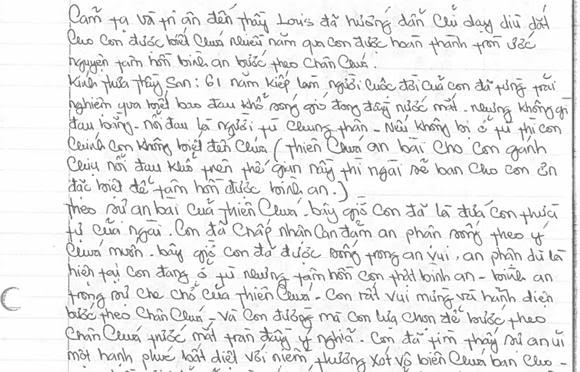 Cảm tạ và tri ân đến thầy Louis đã hướng dẫn chỉ dạy dìu dắt
cho con được biết Chúa nhiều năm qua con được hoàn thành trọn ước
nguyện tâm hồn bình an bước theo chân Chúa.
Kính thưa thầy San: 61 năm kiếp làm người cuộc đời của con đã từng trải
nghiệm qua biết bao đau khổ sóng gió đong đầy nước mắt - nhưng không gì
đau bằng - nỗi đau là người tù chung thân - Nếu không bị ở tù thì con
chính con không biết đến Chúa (Thiên Chúa an bài cho con gánh
chịu nỗi đau khổ trên thế gian này thì ngài sẽ ban cho con ơn
đặc biệt để tâm hồn được bình an.)
theo sự an bài của thiên Chúa - bây giờ con đã là đứa con thừa
tự của ngài. Con đã chấp nhận can đảm an phận sống theo ý
Chúa muốn - bây giờ con đã được sống trong an vui, an phận dù là
hiện tại con đang ở tù nhưng tâm hồn con thật bình an - bình an
trong sự che chở của thiên Chúa - con rất vui mừng và hãnh diện
bước theo chân Chúa - Và con đường mà con lựa chọn để bước theo
chân Chúa trước mắt tràn đầy ý nghĩa - Con đã tìm thấy sự an ủi
một hạnh phúc bất diệt với niềm thương xót vô biên Chúa ban cho -